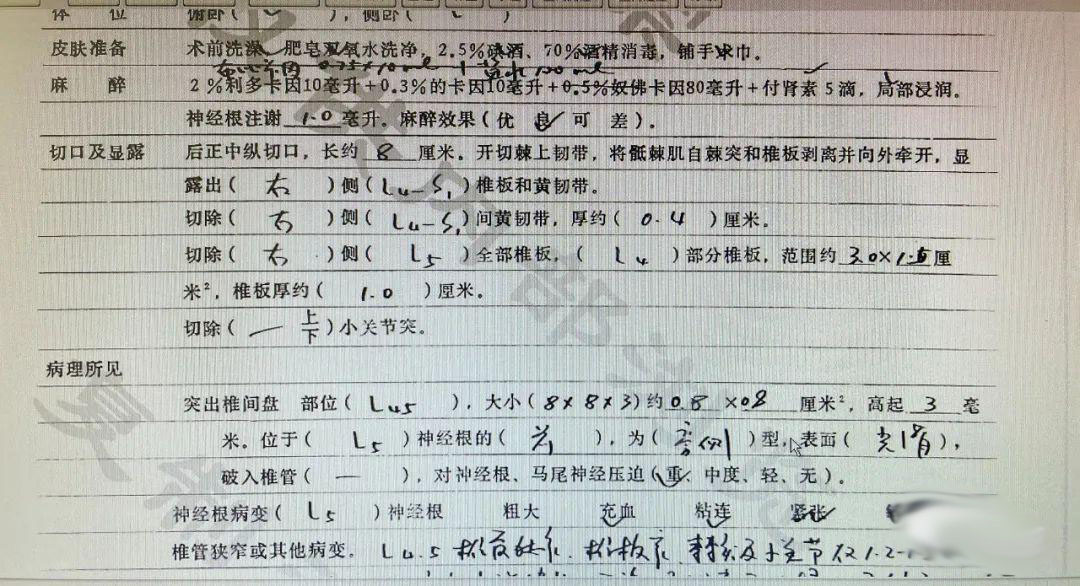 体 位 俯卧( ),侧卧( )
皮肤准备 术前洗澡、肥皂双氧水洗净,2.5%碘酒、70%酒精消毒,铺手术巾。
0.75×10ml
麻 醉 2%利多卡因10毫升+0.3%的卡因10毫升+0.5%奴佛卡因80毫升+付肾素5滴,局部浸润。
神经根注谢 1.0 毫升。麻醉效果(优 良 可 差)。
切口及显露 后正中纵切口,长约 8 厘米。开切棘上韧带,将骶棘肌自棘突和椎板剥离并向外牵开,显
露出( 右 )侧( L4-S1 )椎板和黄韧带。
切除( 右 )侧( L4-S1 )间黄韧带,厚约( 0.4 )厘米。
切除( 右 )侧( L5 )全部椎板,( L4 )部分椎板,范围约 3.0×1.5 厘
米²,椎板厚约( 1.0 )厘米。
切除( — 上下 )小关节突。
病理所见
突出椎间盘 部位( L45 ),大小(8×8×3)约 0.8 ×0.8 厘米²,高起 3 毫
米。位于( L5 )神经根的( 前 ),为( )型,表面( 光滑 ),
破入椎管( — ),对神经根、马尾神经压迫(重、中度、轻、无)。
神经根病变( L5 )神经根 粗大 充血 粘连 紧张
椎管狭窄或其他病变。 L4.5